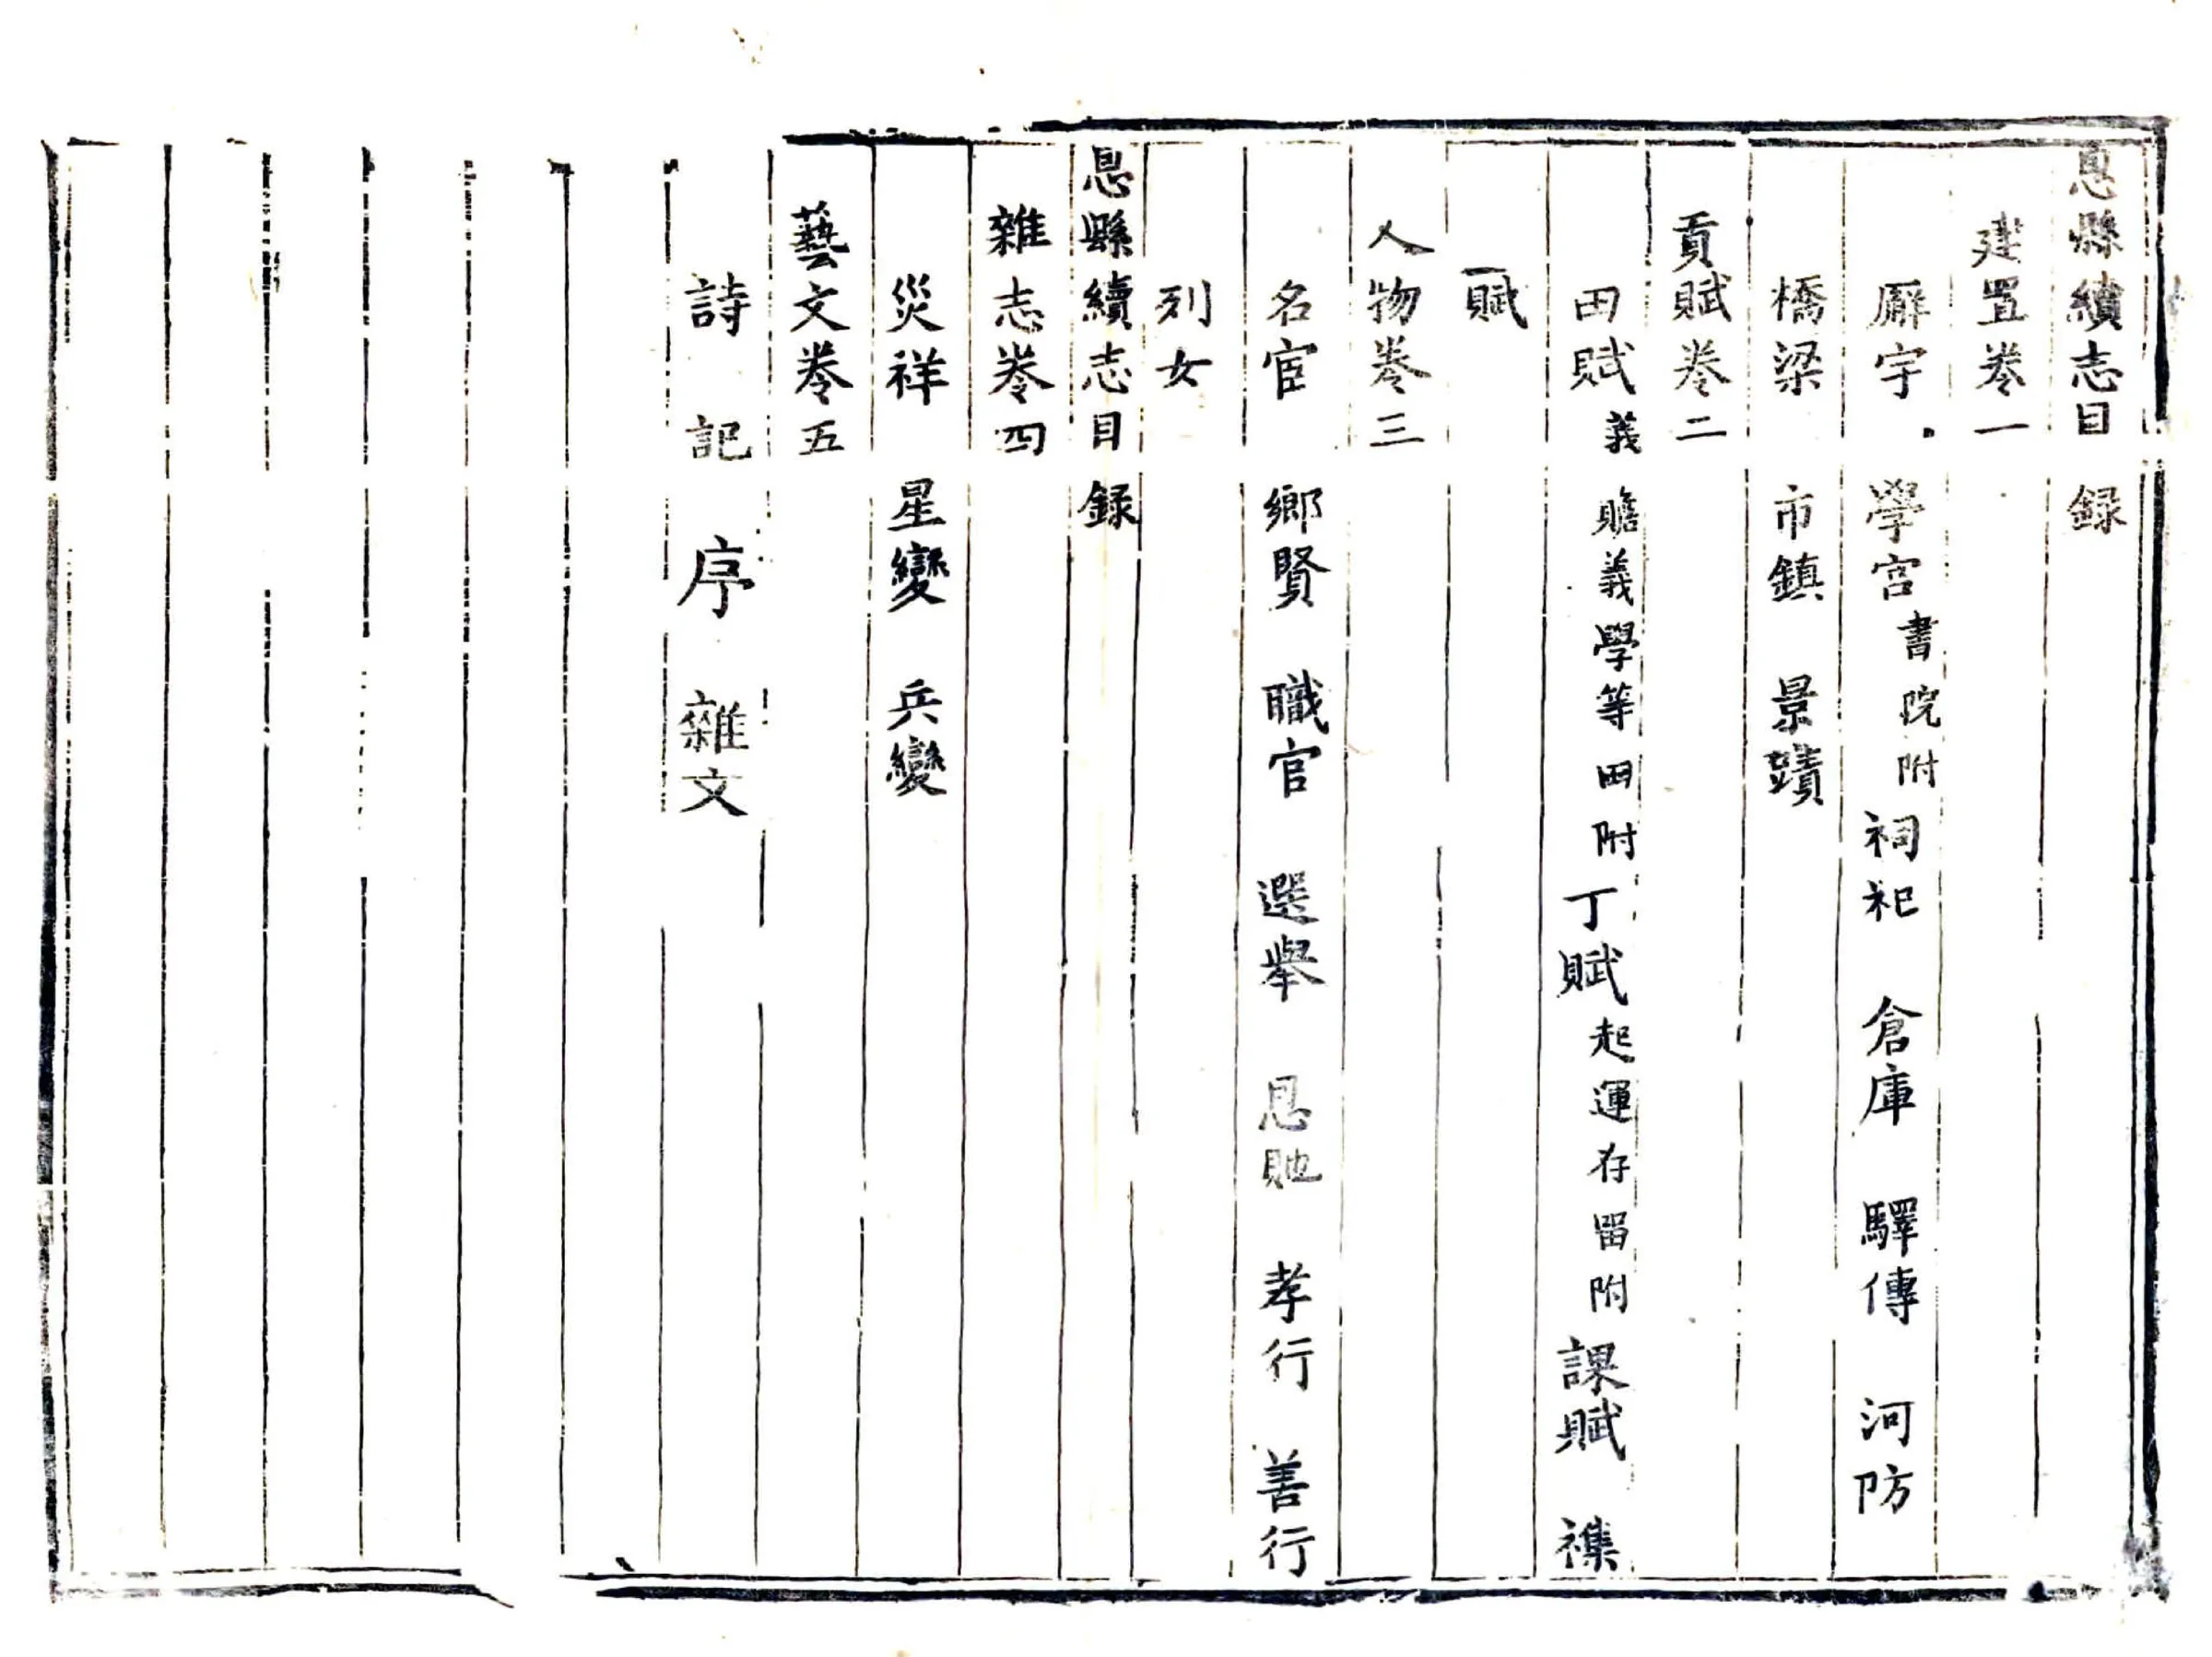 息縣續志目錄
建置卷一
廨宇 學宮書院附祠祀 倉庫 驛傳 河防
橋梁 市鎮 景蹟
貢賦卷二
田賦義贍義學等田附丁賦起運存留附課賦 襍
賦
人物卷三
名宦 鄉賢 職官 選舉 恩貤 孝行 善行
列女
息縣續志目錄
雜志卷四
災祥 星變 兵變
藝文卷五
詩 記 序 雜文